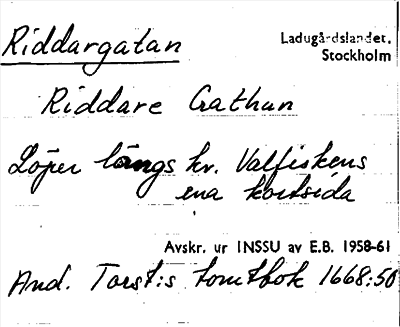 Riddargatan
Ladugårdslandet,
Stockholm
Riddare Gathun
Löper längs kv. Valfiskens
ena kortsida
Avskr. ur INSSU av E.B. 1958-61
And. Torst:s tomtbok 1668:50